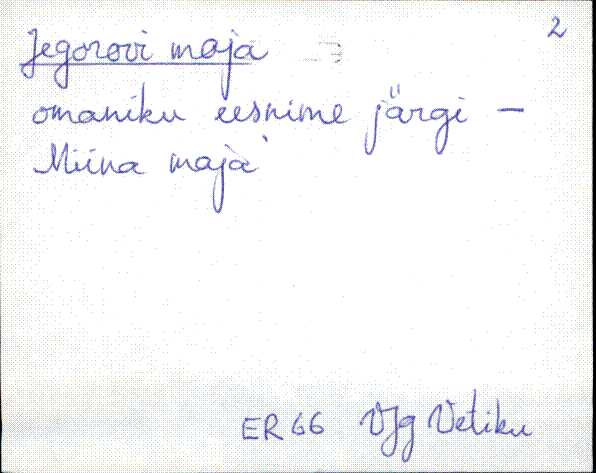 2
Jegorovi maja
omaniku eesnime järgi —
Miina maja
ER 66 VJg Vetiku